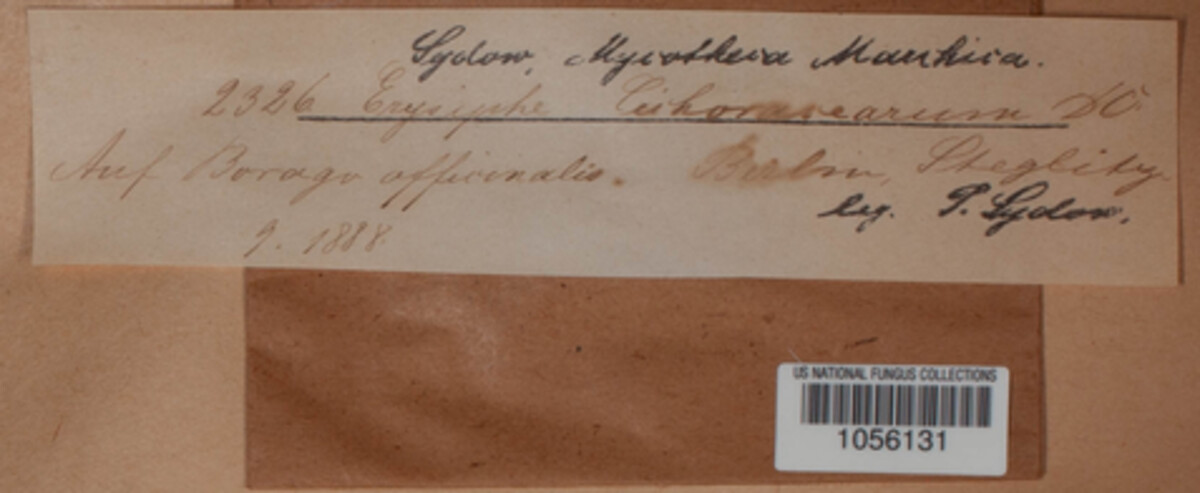 Sydow, Mycotheca Marchica.
2326 Erysiphe Cichoracearum DC
Auf Borago officinalis. Berlin, Steglitz
leg. P. Sydow.
9. 1888
US NATIONAL FUNGUS COLLECTIONS
1056131